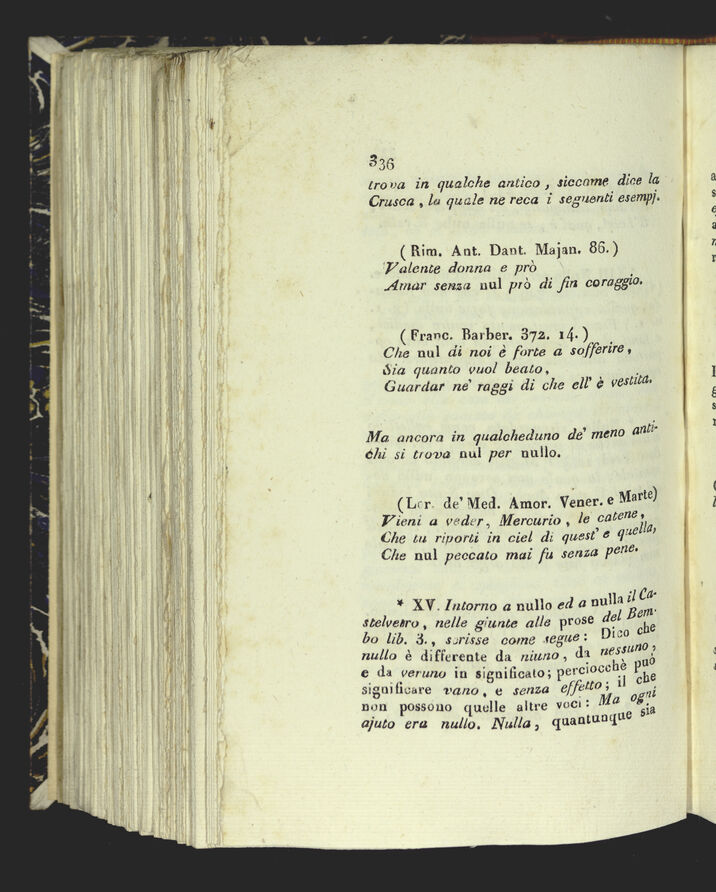 336
trova in qualche antico, siccome dice la
Crusca, la quale ne reca i seguenti esempj.
(Rim. Ant. Dant. Majan. 86.)
Valente donna e prò
Amar senza nul prò di fin coraggio.
(Franc. Barber. 372. 14.)
Che nul di noi è forte a sofferire,
Sia quanto vuol beato,
Guardar ne' raggi di che ell' è vestita.
Ma ancora in qualcheduno de' meno anti-
chi si trova nul per nullo.
(Lor. de' Med. Amor. Vener. e Marte)
Vieni a veder, Mercurio, le catene,
Che tu riporti in ciel di quest' e quella,
Che nul peccato mai fu senza pene.
* XV. Intorno a nullo ed a nulla il Ca-
stelvetro, nelle giunte alle prose del Bem-
bo lib. 3., scrisse come segue: Dico che
nullo è differente da niuno, da nessuno,
e da veruno in significato; perciocchè può
significare vano, e senza effetto; il che
non possono quelle altre voci: Ma ogni
ajuto era nullo. Nulla, quantunque sia